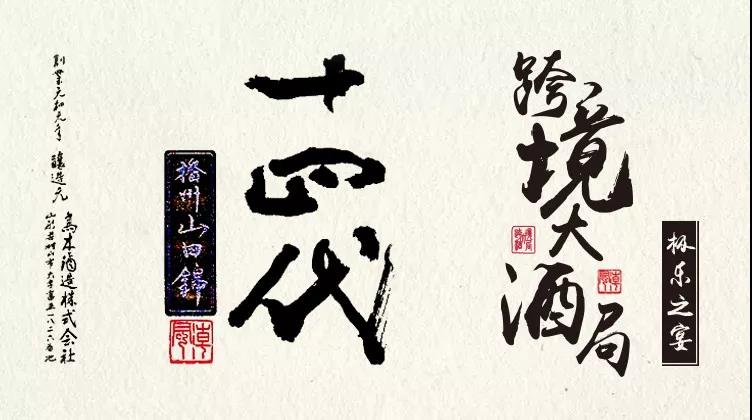 跨境大酒局
极乐之宴
十四代
播州山田錦
創業元和元年 醸造元
高木酒造株式会社
山形県村山市大字富並一八二六番地